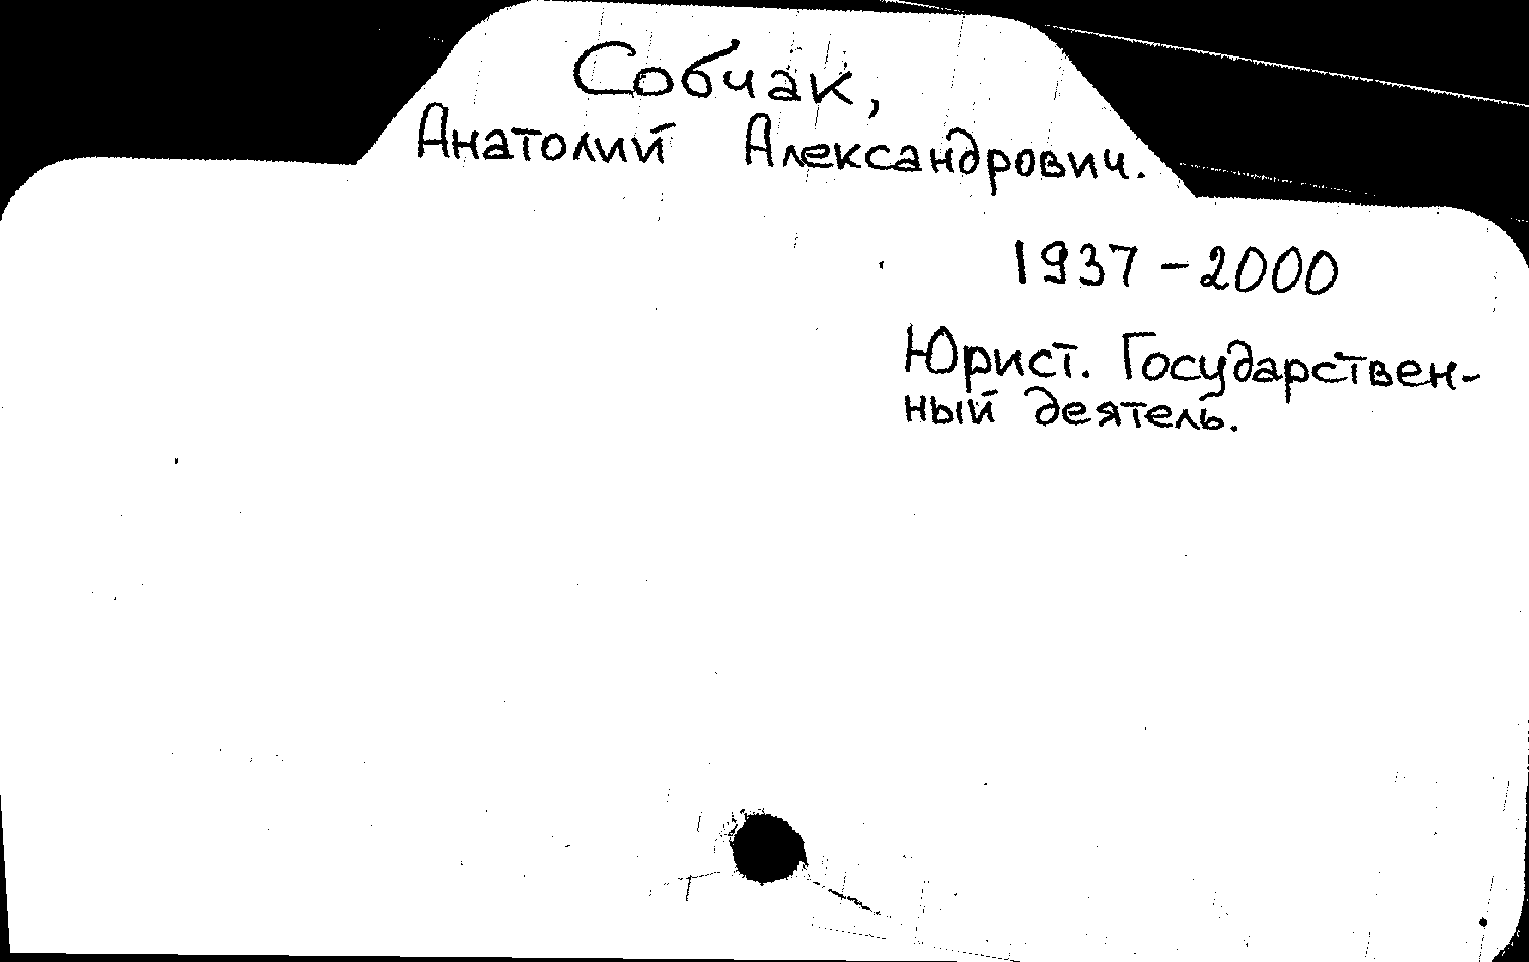 Собчак,
Анатолий Александрович.
1937-2000
Юрист. Государствен-
ный деятель.